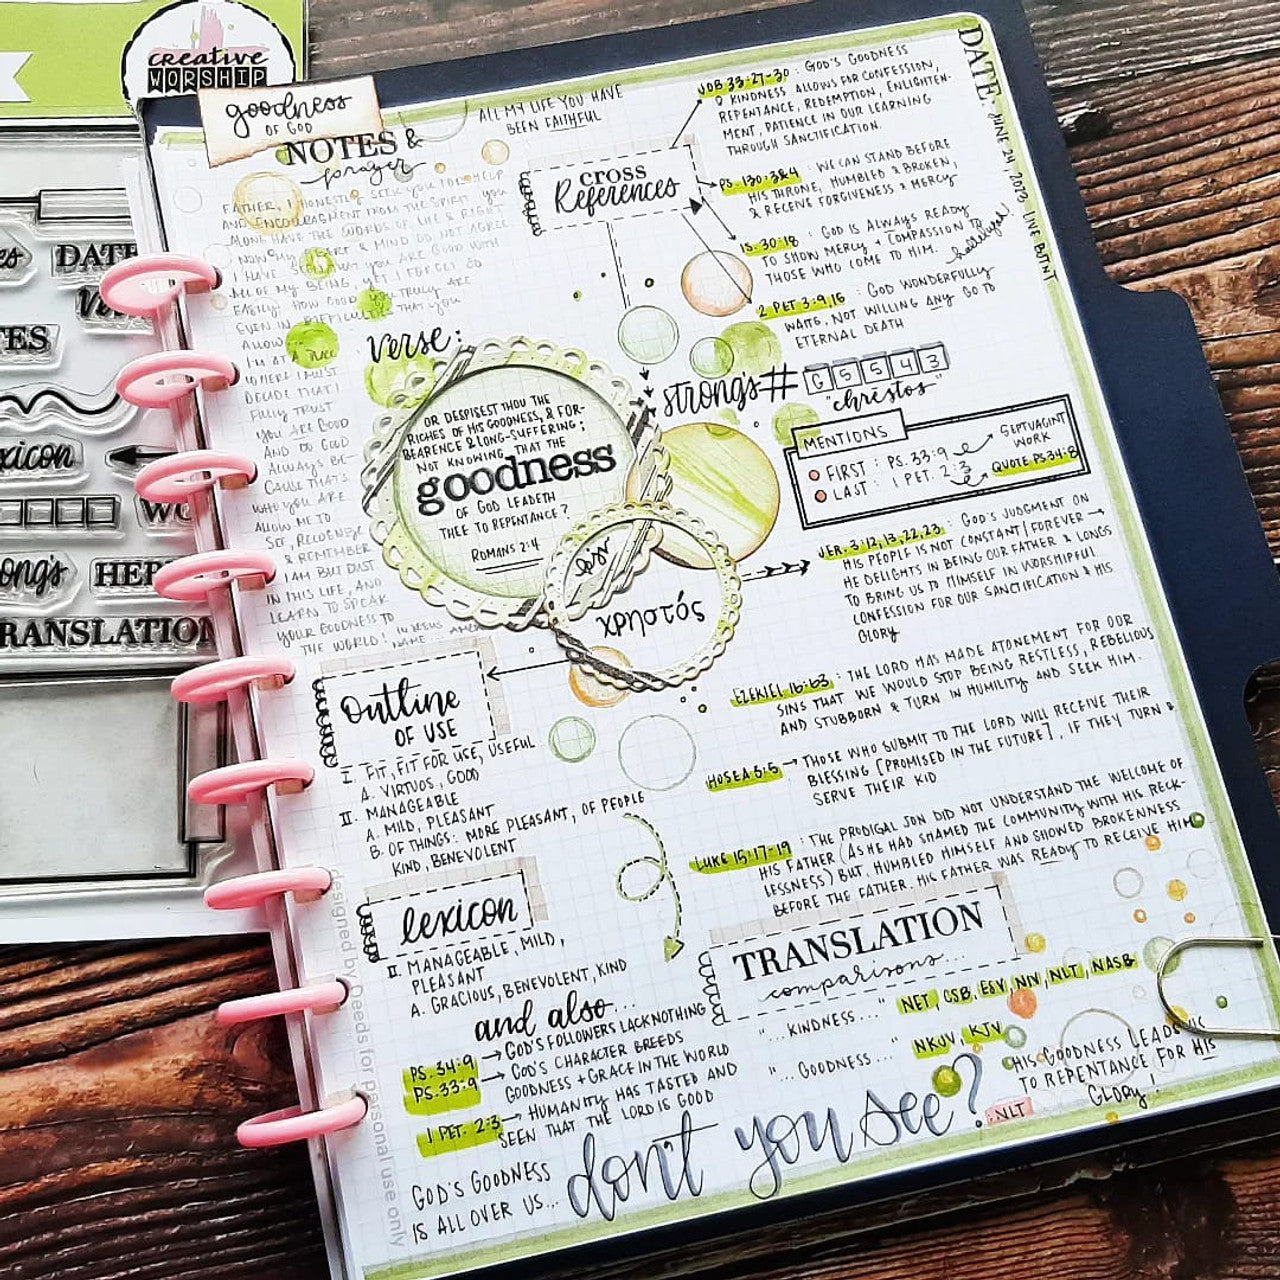 creative
WORSHIP
goodness
OF GOD
NOTES &
prayer
ALL MY LIFE YOU HAVE
BEEN FAITHFUL
DATE: JUNE 24, 2023
FATHER, I HONESTLY SEEK YOU FOR HELP
AND ENCOURAGEMENT FROM THE SPIRIT. YOU
ALONE HAVE THE WORDS OF LIFE & RIGHT
NOW MY HEART & MIND DO NOT AGREE
I HAVE SEEN THAT YOU ARE GOOD WITH
ALL OF MY BEING, YET I FORGET SO
EASILY HOW GOOD YOU TRULY ARE
EVEN IN DIFFICULTIES THAT YOU
ALLOW.
I'M AT A TREE
WHERE I MUST
DECIDE THAT I
FULLY TRUST
YOU ARE GOOD
AND DO GOOD
ALWAYS BE-
CAUSE THAT'S
WHO YOU ARE.
ALLOW ME TO
SEE, RECOGNIZE
& REMEMBER
I AM BUT DUST
IN THIS LIFE, AND
LEARN TO SPEAK
YOUR GOODNESS TO
THE WORLD! IN JESUS
NAME
verse:
OR DESPISEST THOU THE
RICHES OF HIS GOODNESS, & FOR-
BEARENCE & LONG-SUFFERING;
NOT KNOWING THAT THE
goodness
OF GOD LEADETH
THEE TO REPENTANCE?
ROMANS 2:4
χρηστός
CROSS
References
JOB 33:27-30 : GOD'S GOODNESS
& KINDNESS ALLOWS FOR CONFESSION,
REPENTANCE, REDEMPTION, ENLIGHTEN-
MENT, PATIENCE IN OUR LEARNING
THROUGH SANCTIFICATION.
PS. 130:3&4 : WE CAN STAND BEFORE
HIS THRONE, HUMBLED & BROKEN,
& RECEIVE FORGIVENESS & MERCY
IS. 30:18 : GOD IS ALWAYS READY
TO SHOW MERCY + COMPASSION TO
THOSE WHO COME TO HIM. hallelujah!
2 PET 3:9,15 : GOD WONDERFULLY
WAITS, NOT WILLING ANY GO TO
ETERNAL DEATH
strong's # G5543
"chrēstos"
MENTIONS
FIRST : PS. 33:9
LAST : 1 PET. 2:3
SEPTUAGINT
WORK
QUOTE PS 34:8
JER. 3:12,13,22,23 : GOD'S JUDGMENT ON
HIS PEOPLE IS NOT CONSTANT/FOREVER →
HE DELIGHTS IN BEING OUR FATHER & LONGS
TO BRING US TO HIMSELF IN WORSHIPFUL
CONFESSION FOR OUR SANCTIFICATION & HIS
GLORY
EZEKIEL 16:63 : THE LORD HAS MADE ATONEMENT FOR OUR
SINS THAT WE WOULD STOP BEING RESTLESS, REBELIOUS
AND STUBBORN & TURN IN HUMILITY AND SEEK HIM.
HOSEA 3:5 → THOSE WHO SUBMIT TO THE LORD WILL RECEIVE THEIR
BLESSING [PROMISED IN THE FUTURE], IF THEY TURN &
SERVE THEIR KID
LUKE 15:17-19 : THE PRODIGAL SON DID NOT UNDERSTAND THE WELCOME OF
HIS FATHER (AS HE HAD SHAMED THE COMMUNITY WITH HIS RECK-
LESSNESS) BUT, HUMBLED HIMSELF AND SHOWED BROKENNESS
BEFORE THE FATHER. HIS FATHER WAS READY TO RECEIVE HIM
Outline
OF USE
I. FIT, FIT FOR USE, USEFUL
A. VIRTUOS, GOOD
II. MANAGEABLE
A. MILD, PLEASANT
B. OF THINGS: MORE PLEASANT, OF PEOPLE
KIND, BENEVOLENT
lexicon
II. MANAGEABLE, MILD,
PLEASANT
A. GRACIOUS, BENEVOLENT, KIND
and also...
PS. 34:9 → GOD'S FOLLOWERS LACK NOTHING
PS. 33:9 → GOD'S CHARACTER BREEDS
GOODNESS + GRACE IN THE WORLD
1 PET. 2:3 → HUMANITY HAS TASTED AND
SEEN THAT THE LORD IS GOOD
TRANSLATION
comparisons...
"... KINDNESS..." NET, CSB, ESV, NIV, NLT, NASB
"... GOODNESS..." NKJV, KJV
GOD'S GOODNESS
IS ALL OVER US...
don't you see? :NLT
HIS GOODNESS LEADS US
TO REPENTANCE FOR HIS
GLORY!
designed by
for personal use only
DATE
TES
lexicon
HER
TRANSLATION